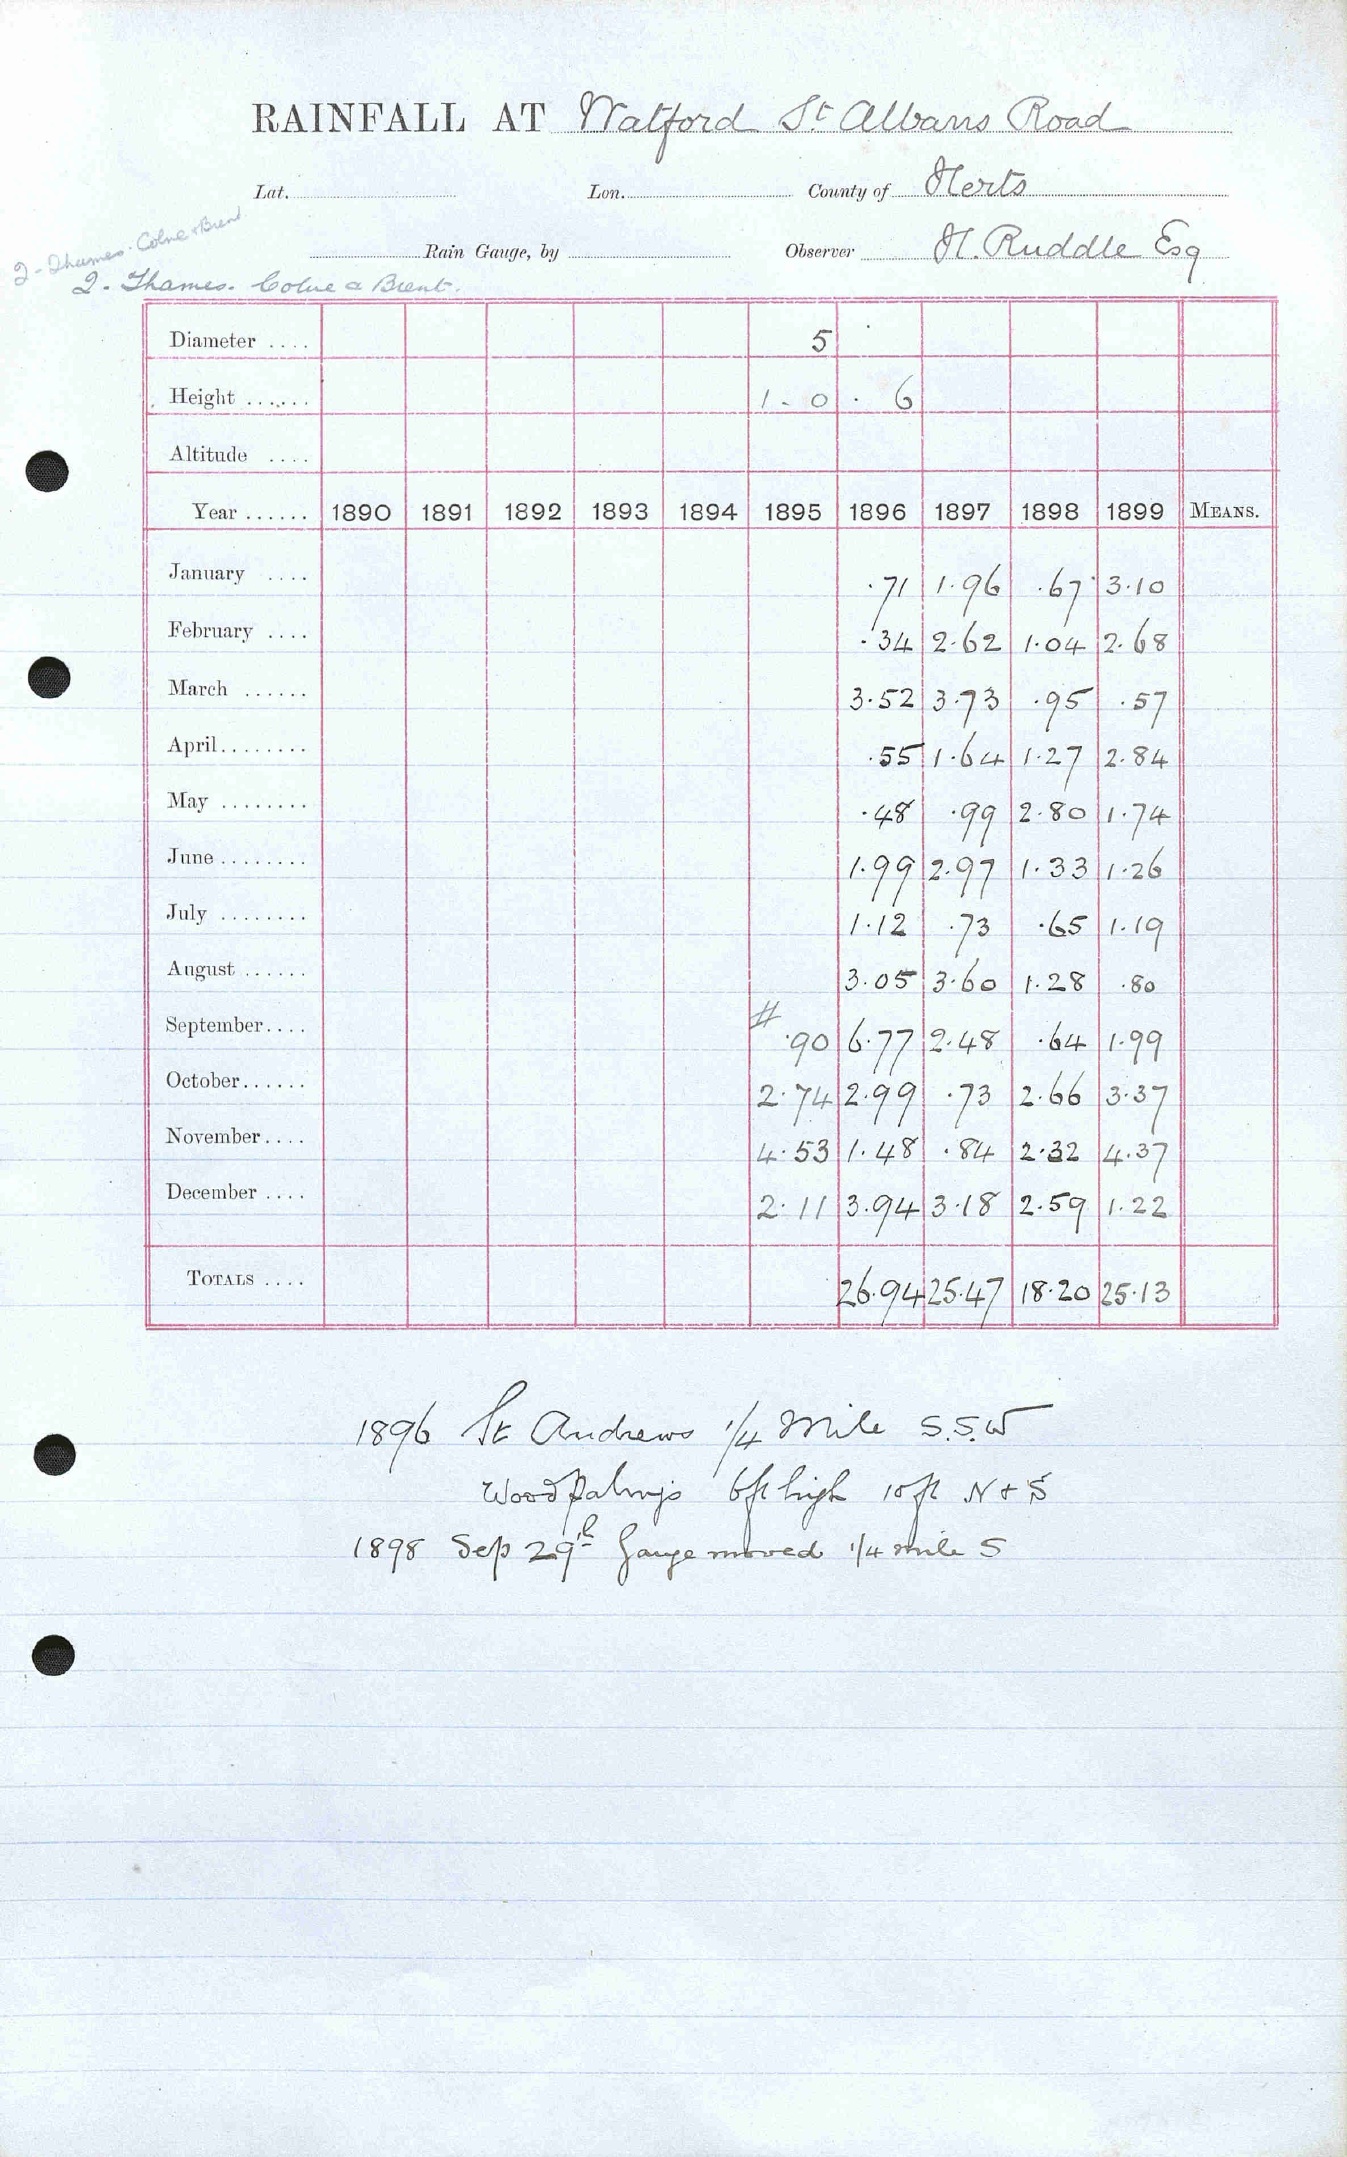 RAINFALL AT Watford St Albans Road
Lat. Lon. County of Herts
2 - Thames. Colne & Brent
Rain Gauge, by Observer H. Ruddle Esq
2 - Thames. Colne & Brent.
Diameter .... 5
Height ...... 1 - 0 · 6
Altitude ....
Year ...... 1890 1891 1892 1893 1894 1895 1896 1897 1898 1899 MEANS.
January .... ·71 1·96 ·67 3·10
February .... ·34 2·62 1·04 2·68
March ...... 3·52 3·73 ·95 ·57
April ........ ·55 1·64 1·27 2·84
May ........ ·48 ·99 2·80 1·74
June ........ 1·99 2·97 1·33 1·26
July ........ 1·12 ·73 ·65 1·19
August ...... 3·05 3·60 1·28 ·80
September.... # ·90 6·77 2·48 ·64 1·99
October...... 2·74 2·99 ·73 2·66 3·37
November.... 4·53 1·48 ·84 2·32 4·37
December .... 2·11 3·94 3·18 2·59 1·22
TOTALS .... 26·94 25·47 18·20 25·13
1896 St Andrews 1/4 Mile S.S.W
Wood palings 6ft high 10ft N & S
1898 Sep 29th Gauge moved 1/4 mile S